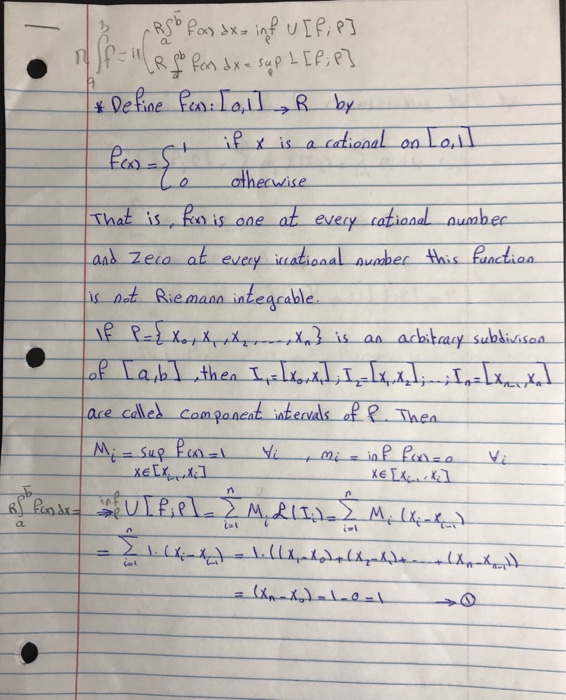 R∫_a^b̄ f(x) dx = inf_P U[f;P]
R∫_a̲^b f(x) dx = sup_P L[f;P]
* Define f(x): [0,1] → R by
f(x) = { 1 if x is a rational on [0,1]
0 otherwise
That is, f(x) is one at every rational number
and zero at every irrational number this function
is not Riemann integrable.
If P={x₀, x₁, x₂, ..., xₙ} is an arbitrary subdivison
of [a,b], then I₁=[x₀,x₁], I₂=[x₁,x₂], ..., Iₙ=[xₙ₋₁,xₙ]
are called component intervals of P. Then
Mᵢ = sup f(x) = 1 ∀i , mᵢ = inf f(x) = 0 ∀i
x∈[xᵢ₋₁,xᵢ] x∈[xᵢ₋₁,xᵢ]
R∫_a^b̄ f(x) dx = inf_P U[f;P] = Σ_{i=1}^n Mᵢ ℓ(Iᵢ) = Σ_{i=1}^n Mᵢ (xᵢ-xᵢ₋₁)
= Σ_{i=1}^n 1.(xᵢ-xᵢ₋₁) = 1.((x₁-x₀)+(x₂-x₁)+ ... +(xₙ-xₙ₋₁))
= (xₙ-x₀) = 1-0 = 1 → ①